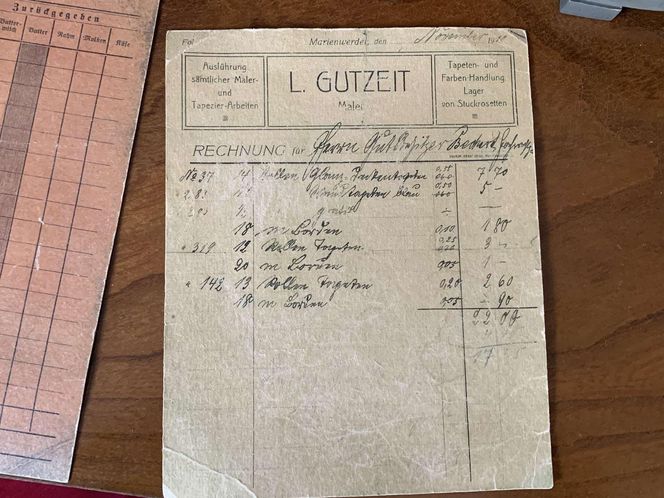 Zurückgegeben
Butter-
milch
Butter
Rahm
Molken
Käse
Fol
Marienwerder, den November 19
Ausführung
sämtlicher Maler-
und
Tapezier-Arbeiten
L. GUTZEIT
Maler
Tapeten- und
Farben-Handlung
Lager
von Stuckrosetten
RECHNUNG für Herrn Gutsbesitzer
No 37 14 Rollen Glanz 0,55 7 70
5 -
18 m Borden 0,10 1 80
" 319 12 Rollen Tapeten 0,25 3 -
20 m Borden 0,05 1 -
" 142 13 Rollen Tapeten 0,20 2 60
18 m Borden 0,05 - 90
22 00
17